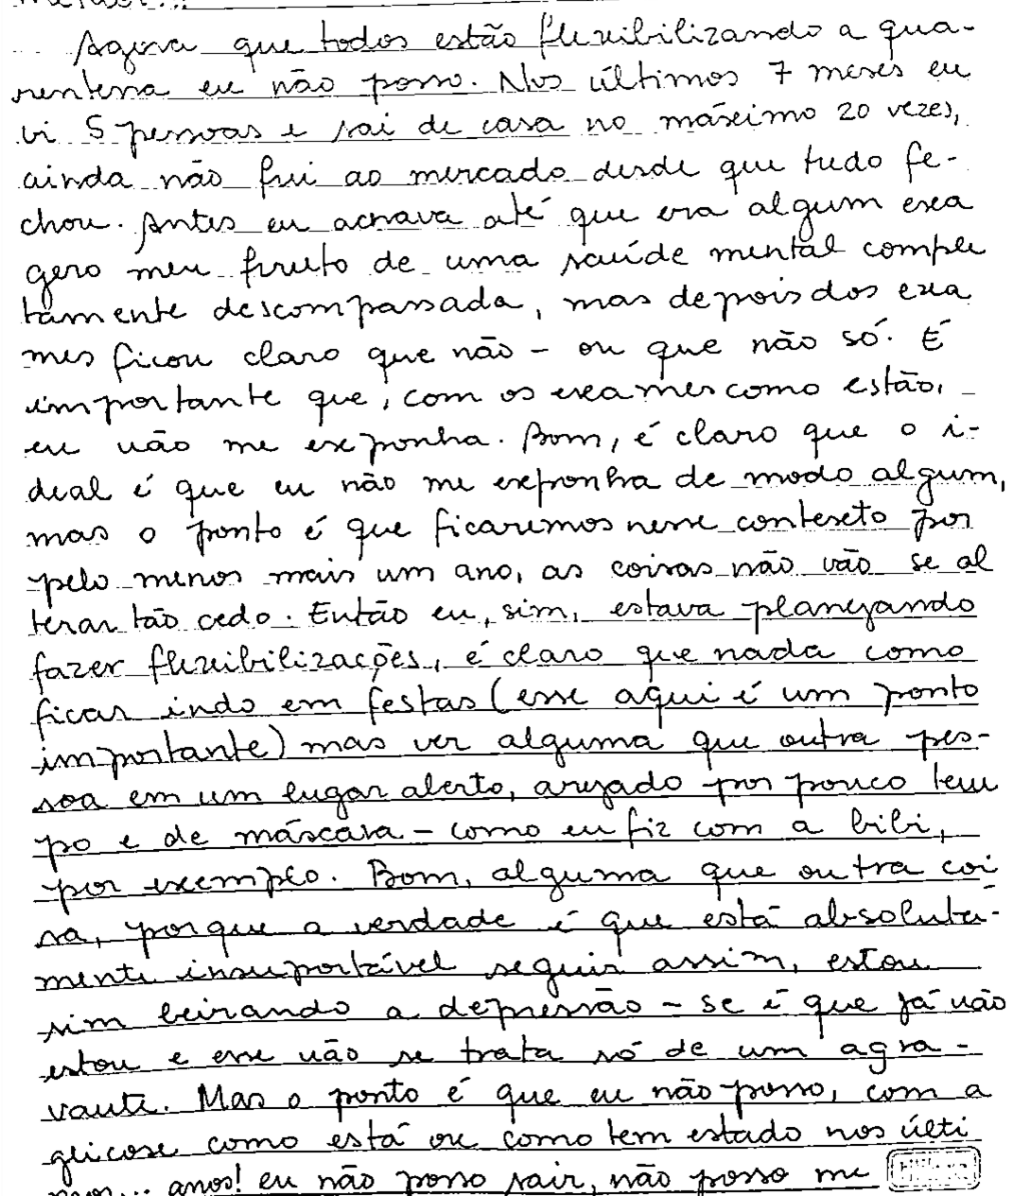 Agora que todos estão flexibilizando a qua-
rentena eu não posso. Nos últimos 7 meses eu
vi 5 pessoas e saí de casa no máximo 20 vezes,
ainda não fui ao mercado desde que tudo fe-
chou. Antes eu achava até que era algum exa
gero meu fruto de uma saúde mental comple
tamente descompassada, mas depois dos exa
mes ficou claro que não - ou que não só. É
importante que, com os exames como estão,
eu não me exponha. Bom, é claro que o i-
deal é que eu não me exponha de modo algum,
mas o ponto é que ficaremos nesse contexto por
pelo menos mais um ano, as coisas não vão se al
terar tão cedo. Então eu, sim, estava planejando
fazer flexibilizações, é claro que nada como
ficar indo em festas (esse aqui é um ponto
importante) mas ver alguma que outra pes-
soa em um lugar aberto, arejado por pouco tem
po e de máscara - como eu fiz com a bibi,
por exemplo. Bom, alguma que outra coi
sa, porque a verdade é que está absoluta-
mente insuportável seguir assim, estou
sim beirando a depressão - se é que já não
estou e esse não se trata só de um agra-
vante. Mas o ponto é que eu não posso, com a
glicose como está ou como tem estado nos últi
mos... anos! eu não posso sair, não posso me